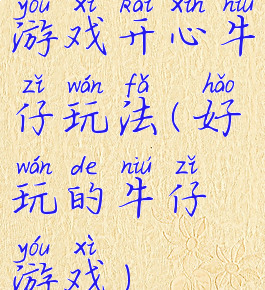 yóu xì kāi xīn niú
游戏开心牛
zǐ wán fǎ hǎo
仔玩法(好
wán de niú zǐ
玩的牛仔
yóu xì
游戏)